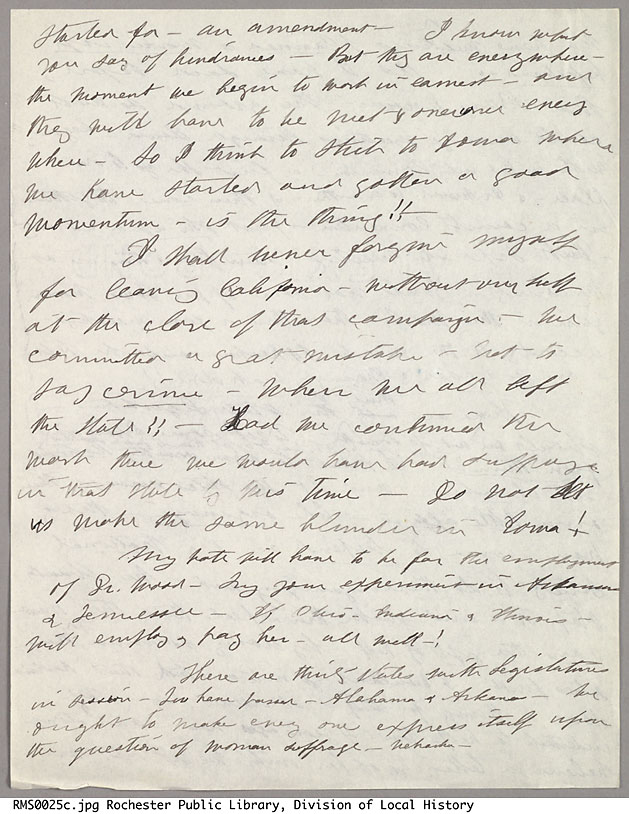 started for - an amendment - I know what
you say of hindrances - But they are everywhere -
the moment we begin to work in earnest - and
they will have to be met & overcome every
where - So I think to stick to Iowa where
we have started and gotten a good
momentum - is the thing!!
I shall never forgive myself
for leaving California - without our help
at the close of that campaign - We
committed a great mistake - not to
say crime - when we all left
the state!! - Had we continued the
work there we would have had suffrage
in that state by this time - Do not let
us make the same blunder in Iowa!
My vote will have to be for the employment
of Dr. Wood - in Arkansas
& Tennessee - If Ohio - Indiana & Illinois -
will employ & pay her - all well -!
There are thirty states with legislatures
in session - Two have passed - Alabama & Arkansas - We
ought to make every one express itself upon
the question of woman suffrage - Nebraska -
RMS0025c.jpg Rochester Public Library, Division of Local History